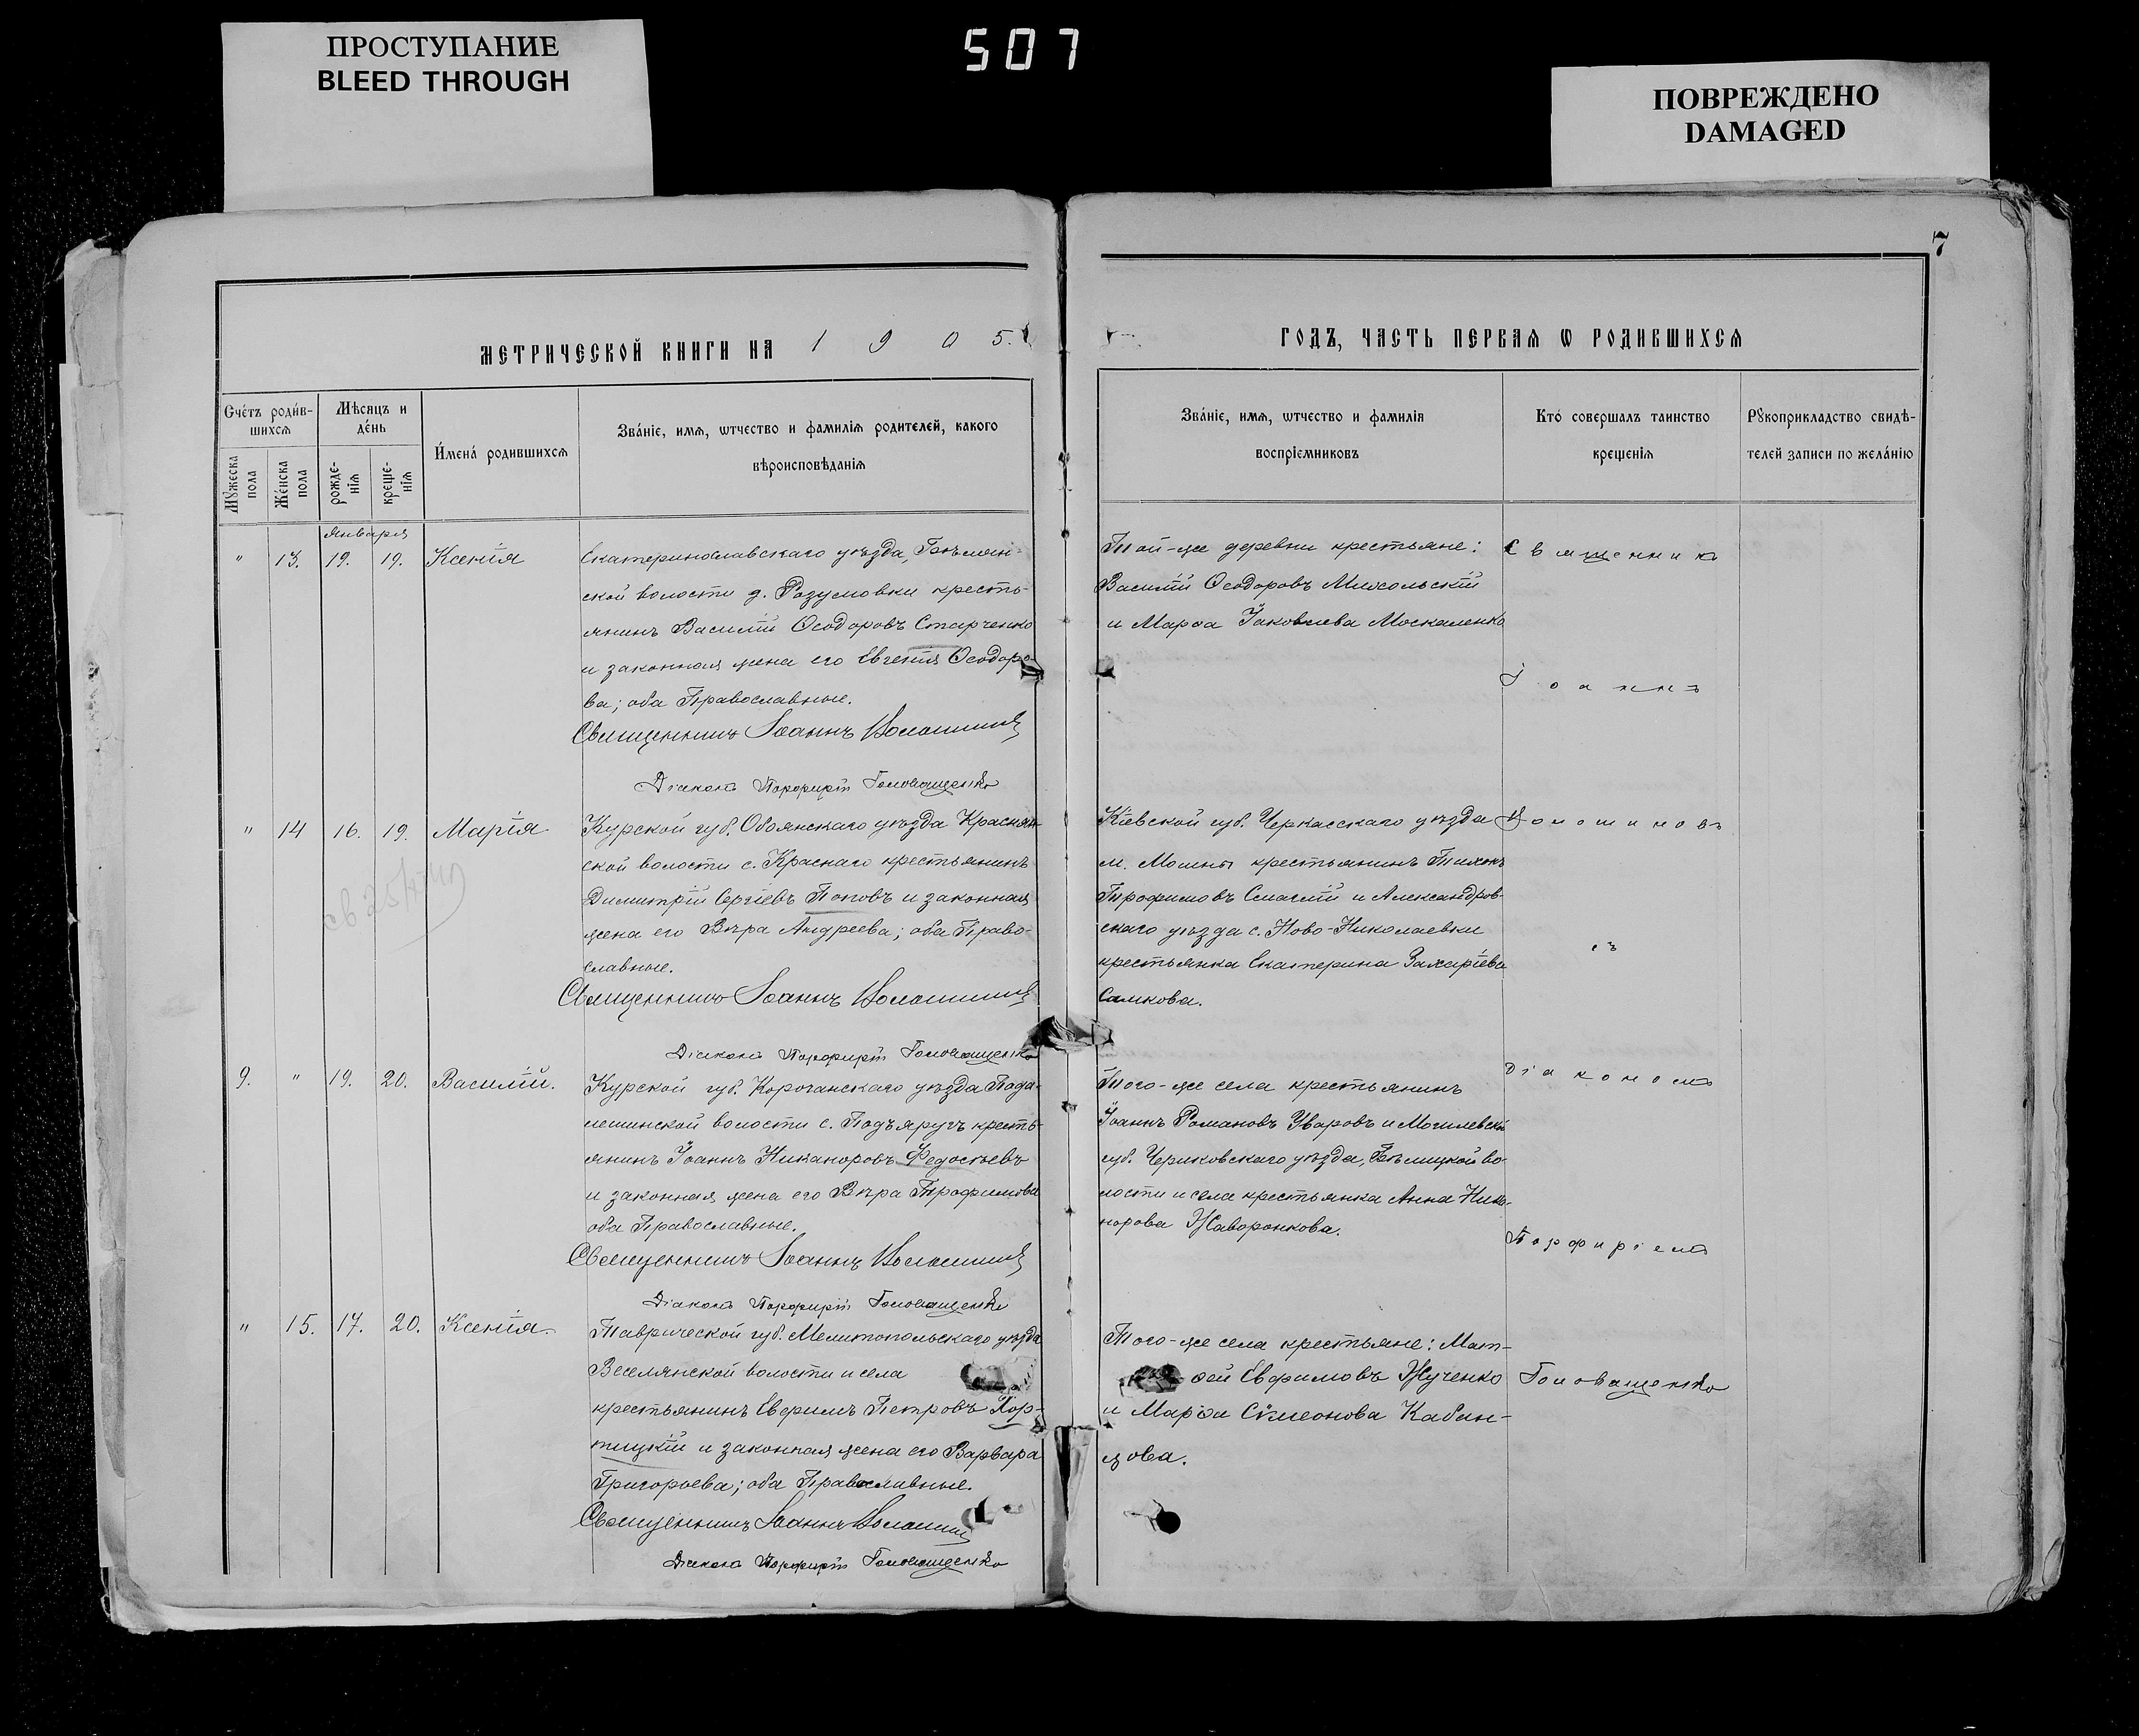 ПРОСТУПАНИЕ
BLEED THROUGH
507
ПОВРЕЖДЕНО
DAMAGED
7
МЕТРИЧЕСКОЙ КНИГИ НА 1905
ГОДЪ, ЧАСТЬ ПЕРВАЯ Ѡ РОДИВШИХСЯ
Счетъ родив-
шихся
Мужеска
пола
Женска
пола
Мѣсяцъ и
день
рожде-
нія
креще-
нія
Имена родившихся
Званіе, имя, ѡтчество и фамилія родителей, какого
вѣроисповѣданія
Званіе, имя, ѡтчество и фамилія
воспріемниковъ
Кто совершалъ таинство
крещенія
Рукоприкладство свидѣ-
телей записи по желанію
Января
" 13. 19. 19. Ксенія
Екатеринославскаго уѣзда, Бѣлян-
ской волости д. Розумовки кресть-
янинъ Василій Ѳеодоровъ Старченко
и законная жена его Евгенія Ѳеодоро-
ва; оба Православные.
Священникъ Іоаннъ Волошиновъ
Діаконъ Порфирій Головащенко
Той-же деревни крестьяне:
Василій Ѳеодоровъ
и Марѳа Іаковлева Москаленко
" 14 16. 19. Марія
Курской губ. Обоянскаго уѣзда Краснян-
ской волости с. Краснаго крестьянинъ
Димитрій Сергіевъ Поповъ и законная
жена его Вѣра Андреева; оба Право-
славные.
Священникъ Іоаннъ Волошиновъ
Діаконъ Порфирій Головащенко
Кіевской губ. Черкасскаго уѣзда
м. Мошны крестьянинъ Тихонъ
Трофимовъ Смаглій и Александров-
скаго уѣзда с. Ново-Николаевки
крестьянка Екатерина Захаріева
Салкова.
9. " 19. 20. Василій.
Курской губ. Корочанскаго уѣзда
волости с. Подъяругъ кресть-
янинъ Іоаннъ Никаноровъ Федосѣевъ
и законная жена его Вѣра Трофимова
оба Православные.
Священникъ Іоаннъ Волошиновъ
Діаконъ Порфирій Головащенко
Того-же села крестьянинъ
Іоаннъ Романовъ Уваровъ и Могилевской
губ. Чериковскаго уѣзда, Бѣлицкой во-
лости и села крестьянка Анна Ника-
норова Жаворонкова.
" 15. 17. 20. Ксенія.
Таврической губ. Мелитопольскаго уѣзда
Веселянской волости и села
крестьянинъ Евѳимъ Петровъ Хор-
тицкій и законная жена его Варвара
Григорьева; оба Православные.
Священникъ Іоаннъ Волошиновъ
Діаконъ Порфирій Головащенко
Того-же села крестьяне: Мат-
ѳей Евѳимовъ Жученко
и Марѳа Сѵмеонова Кабан-
цова.
Священникъ
Іоаннъ
Волошиновъ
съ
Діакономъ
Порфиріемъ
Головащенко